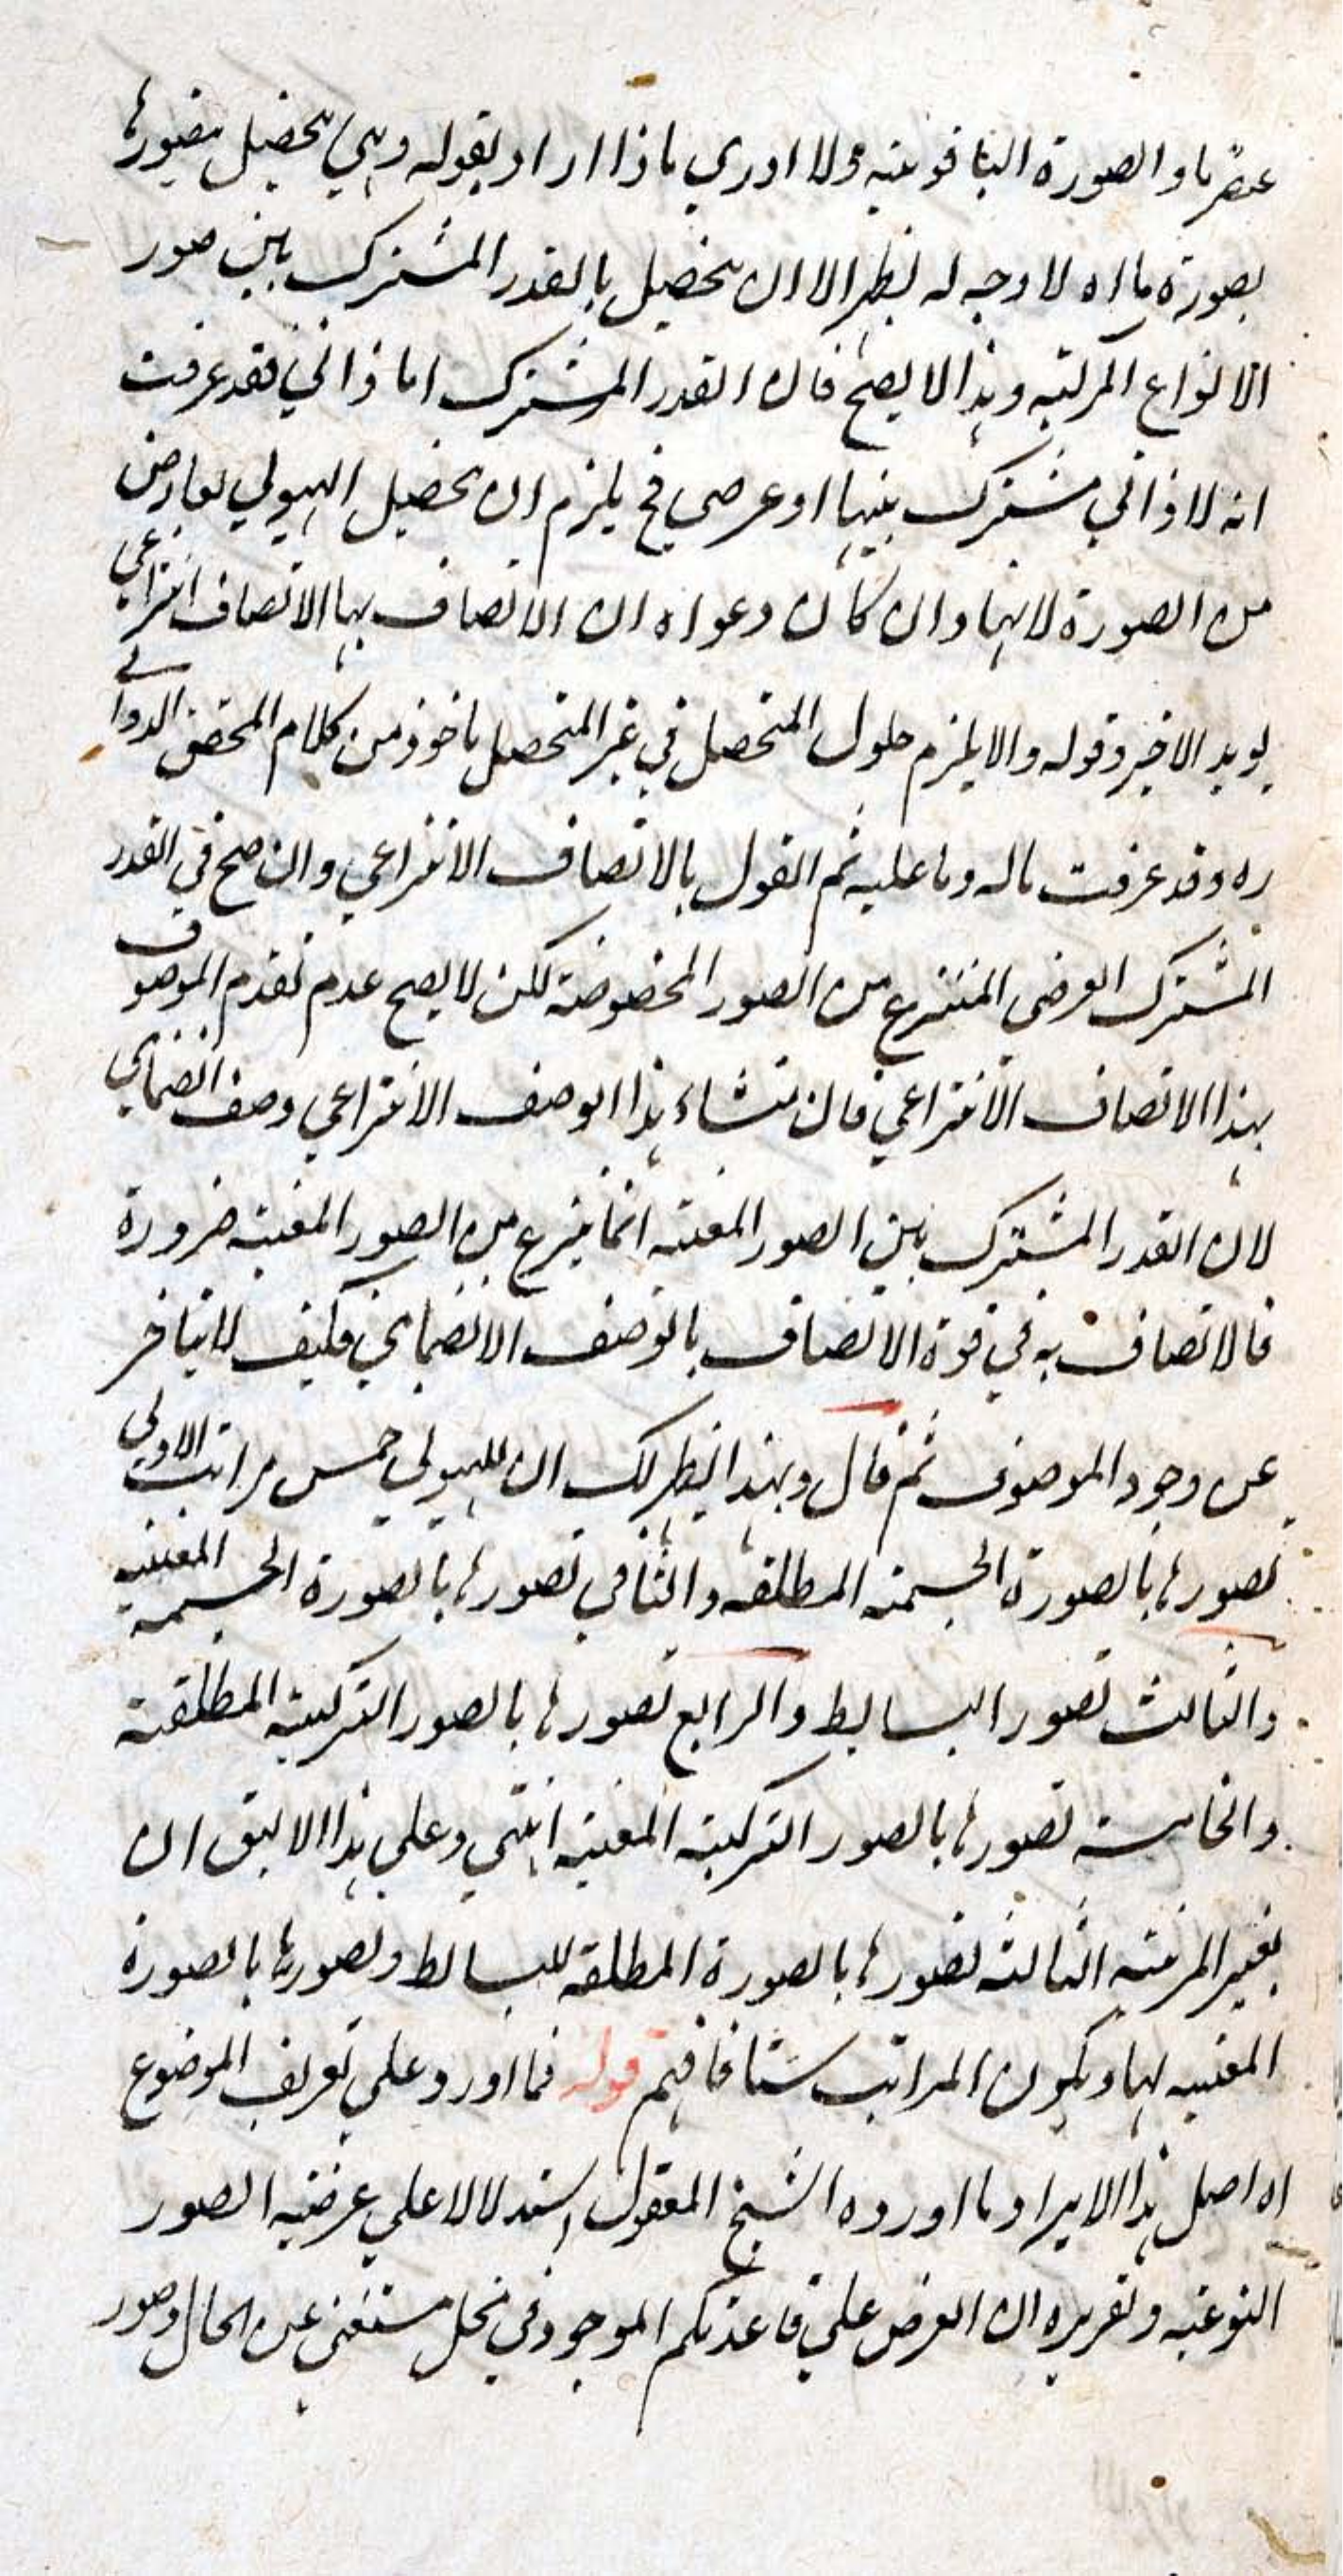 عنصر ما والصورة الياقوتية ولا ادري ماذا اراد بقوله وهي تحصيل بتصورها
بصورة ما اه لا وجه له يظهر الا ان تحصيل بالقدر المشترك بين صور
الانواع المركبة وهذا لا يصح فان القدر المشترك اما ذاتي فقد عرفت
انه لا ذاتي مشترك بينها او عرضي فح يلزم ان تحصيل الهيولي بعارض
من الصورة لا بها وان كان دعواه ان الاتصاف بها الاتصاف انتزاعي
يويد الاخير وقوله والا يلزم حلول المتحصل في غير المتحصل ماخوذ من كلام المحقق الدواني
ره وقد عرفت ماله وما عليه ثم القول بالاتصاف الانتزاعي وان صح في القدر
المشترك العرضي المنتزع من الصور المخصوصة لكن لا يصح عدم تقدم الموصوف
بهذا الاتصاف الانتزاعي فان منشاء هذا الوصف الانتزاعي وصف انضمامي
لان القدر المشترك بين الصور المعينة انما ينتزع من الصور المعينة ضرورة
فالاتصاف به في قوة الاتصاف بالوصف الانضمامي فكيف لا يتاخر
عن وجود الموصوف ثم قال وبهذا يظهر لك ان للهيولي خمس مراتب الاولي
تصورها بالصورة الجسمية المطلقة والثاني تصورها بالصورة الجسمية المعينة
والثالث تصور البسايط والرابع تصورها بالصور التركيبية المطلقة
والخامسة تصورها بالصور التركيبية المعينة انتهي وعلي هذا الاليق ان
يغير المرتبة الثالثة تصورها بالصورة المطلقة للبسايط وتصورها بالصورة
المعينة لها ويكون المراتب ستا فافهم قوله فما اورد علي تعريف الموضوع
اه اصل هذا الايراد ما اورده الشيخ المقتول استدلالا علي عرضية الصور
النوعية وتقريره ان العرض علي قاعدتكم الموجود في محل مستغني عن الحال وصور